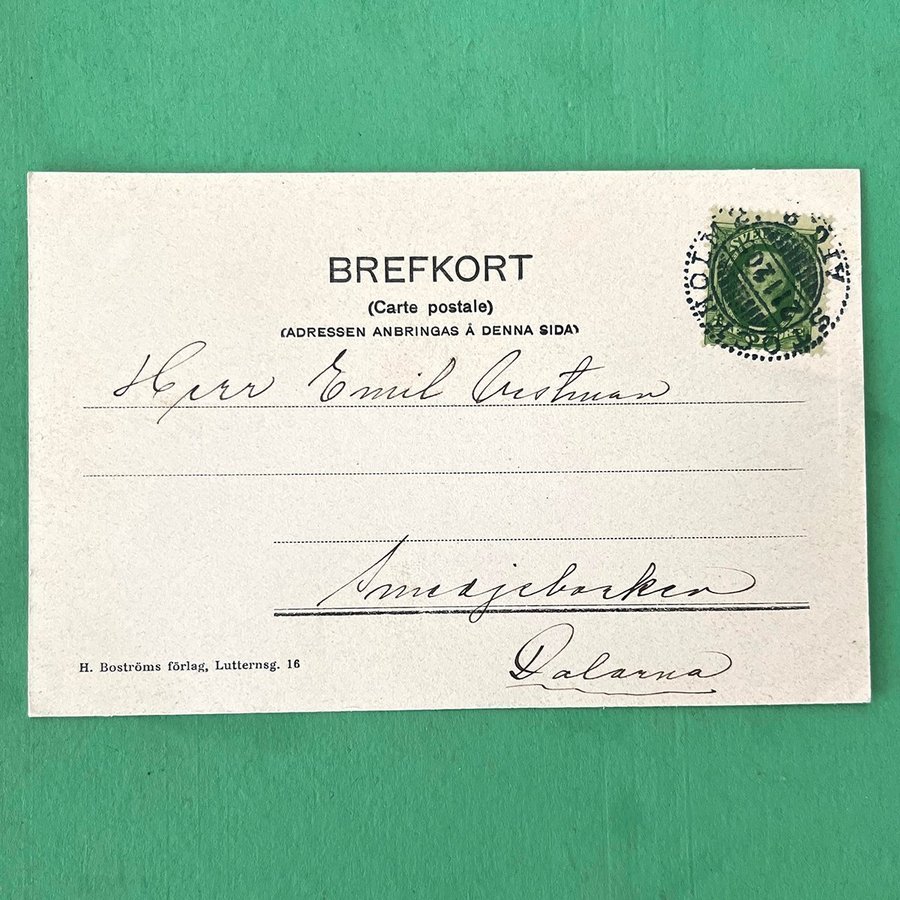 BREFKORT
(Carte postale)
(ADRESSEN ANBRINGAS Å DENNA SIDA)
Herr Emil
Smedjebacken
Dalarna
H. Boströms förlag, Lutternsg. 16